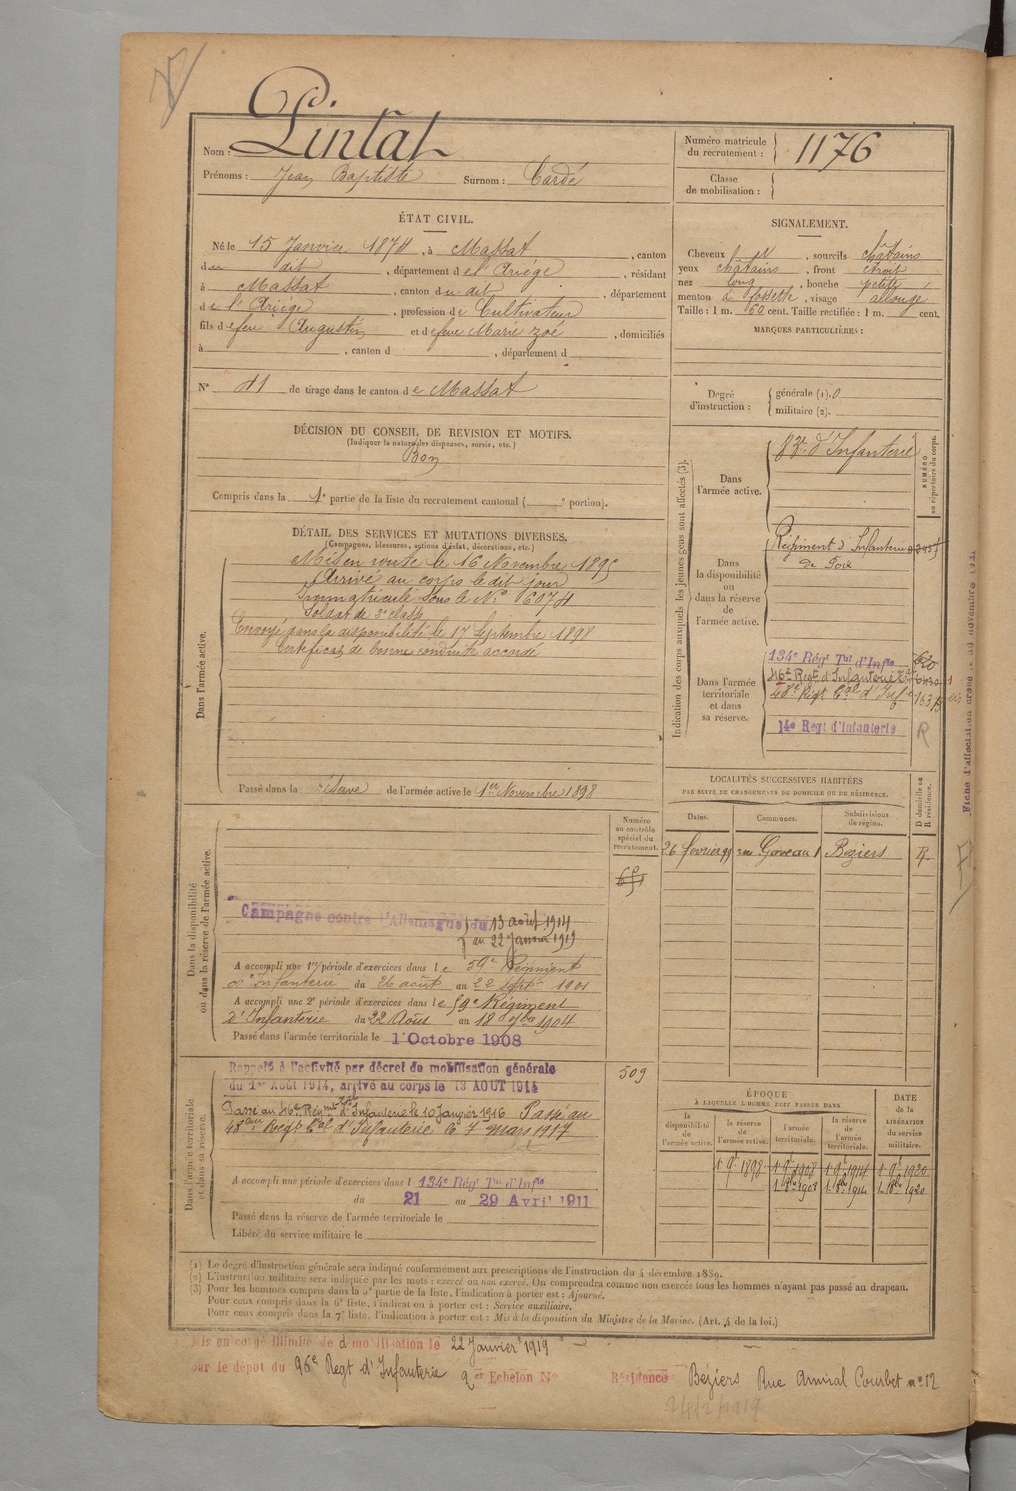 Nom : Pintat
Prénoms : Jean Baptiste Surnom : Cardé
Numéro matricule du recrutement : 1176
Classe de mobilisation :
ÉTAT CIVIL.
Né le 15 Janvier 1874, à Massat, canton
du dit, département de l'Ariège, résidant
à Massat, canton du dit, département
de l'Ariège, profession de Cultivateur
fils de feu Augustin et de feue Marie Zoé, domiciliés
à , canton d , département d
N° 41 de tirage dans le canton de Massat
SIGNALEMENT.
Cheveux , sourcils châtains
yeux châtains, front étroit
nez long, bouche petite
menton à fossette, visage allongé
Taille : 1 m. 60 cent. Taille rectifiée : 1 m. cent.
MARQUES PARTICULIÈRES :
Degré d'instruction : générale (1). 0
militaire (2).
DÉCISION DU CONSEIL DE REVISION ET MOTIFS.
(Indiquer la nature des dispenses, sursis, etc.)
Bon
Compris dans la 1e partie de la liste du recrutement cantonal ( e portion).
DÉTAIL DES SERVICES ET MUTATIONS DIVERSES.
(Campagnes, blessures, actions d'éclat, décorations, etc.)
Dans l'armée active.
Mis en route le 16 Novembre 1895
Arrivé au corps le dit jour
Immatriculé sous le N° 6074
Soldat de 2e classe
Envoyé dans la disponibilité le 17 Septembre 1898
Certificat de bonne conduite accordé
Passé dans la réserve de l'armée active le 1er Novembre 1898
Indication des corps auxquels les jeunes gens sont affectés (3).
NUMÉRO au répertoire du corps.
Dans l'armée active.
83e d'Infanterie
Dans la disponibilité ou dans la réserve de l'armée active.
Régiment d'Infanterie
de Foix
Dans l'armée territoriale et dans sa réserve.
134e Régt Tal d'Infie 620
46e Regt d'Infanterie
48e Regt Cal d'Infie
14e Regt d'Infanterie R
LOCALITÉS SUCCESSIVES HABITÉES
PAR SUITE DE CHANGEMENTS DE DOMICILE OU DE RÉSIDENCE.
D domicile ou R résidence.
Dates. Communes. Subdivisions de région.
26 février 99 rue Goveau 1 Beziers R.
Dans la disponibilité ou dans la réserve de l'armée active.
Numéro au contrôle spécial du recrutement.
Campagne contre l'Allemagne du 13 août 1914
au 22 Janvier 1919
A accompli une 1re période d'exercices dans le 59e Régiment
d'Infanterie du 26 août au 22 Sept 1901
A accompli une 2e période d'exercices dans le 59e Régiment
d'Infanterie du 22 Août au 18 7bre 1904
Passé dans l'armée territoriale le 1 Octobre 1908
Dans l'armée territoriale et dans sa réserve.
509
Rappelé à l'activité par décret de mobilisation générale
du 1er Août 1914, arrivé au corps le 13 AOUT 1914
Passé au 46e Régiment d'Infanterie le 10 Janvier 1916 Passé au
Regt Cal d'Infanterie le 7 mars 1917
A accompli une période d'exercices dans l 134e Rég Tal d'Infie
du 21 au 29 Avril 1911
Passé dans la réserve de l'armée territoriale le
Libéré du service militaire le
ÉPOQUE
À LAQUELLE L'HOMME DOIT PASSER DANS
la disponibilité de l'armée active. la réserve de l'armée active. l'armée territoriale. la réserve de l'armée territoriale.
DATE de la LIBÉRATION du service militaire.
1. 9e 1898 1. 9e 1908 1. 9e 1914 1. 9e 1920
1. 8bre 1908 1. 8bre 1914 1. 8bre 1920
(1) Le degré d'instruction générale sera indiqué conformément aux prescriptions de l'instruction du 4 décembre 1889.
(2) L'instruction militaire sera indiquée par les mots : exercé ou non exercé. On comprendra comme non exercés tous les hommes n'ayant pas passé au drapeau.
(3) Pour les hommes compris dans la 5e partie de la liste, l'indication à porter est : Ajourné.
Pour ceux compris dans la 6e liste, l'indication à porter est : Service auxiliaire.
Pour ceux compris dans la 7e liste, l'indication à porter est : Mis à la disposition du Ministre de la Marine. (Art. 4 de la loi.)
Mis en congé illimité de démobilisation le 22 Janvier 1919
par le dépot du 96e Regt d'Infanterie 2e Echelon N° Résidence Béziers Rue Amiral Courbet n° 12
24/2/1919